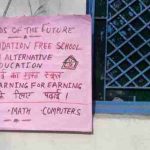 DS OF THE FUTURE
NDATION FREE SCHOOL
ALTERNATIVE
EDUCATION
का मुफ्त स्कूल
EARNING FOR EARNING
के लिए पढ़ाई !
-MATH- COMPUTERS